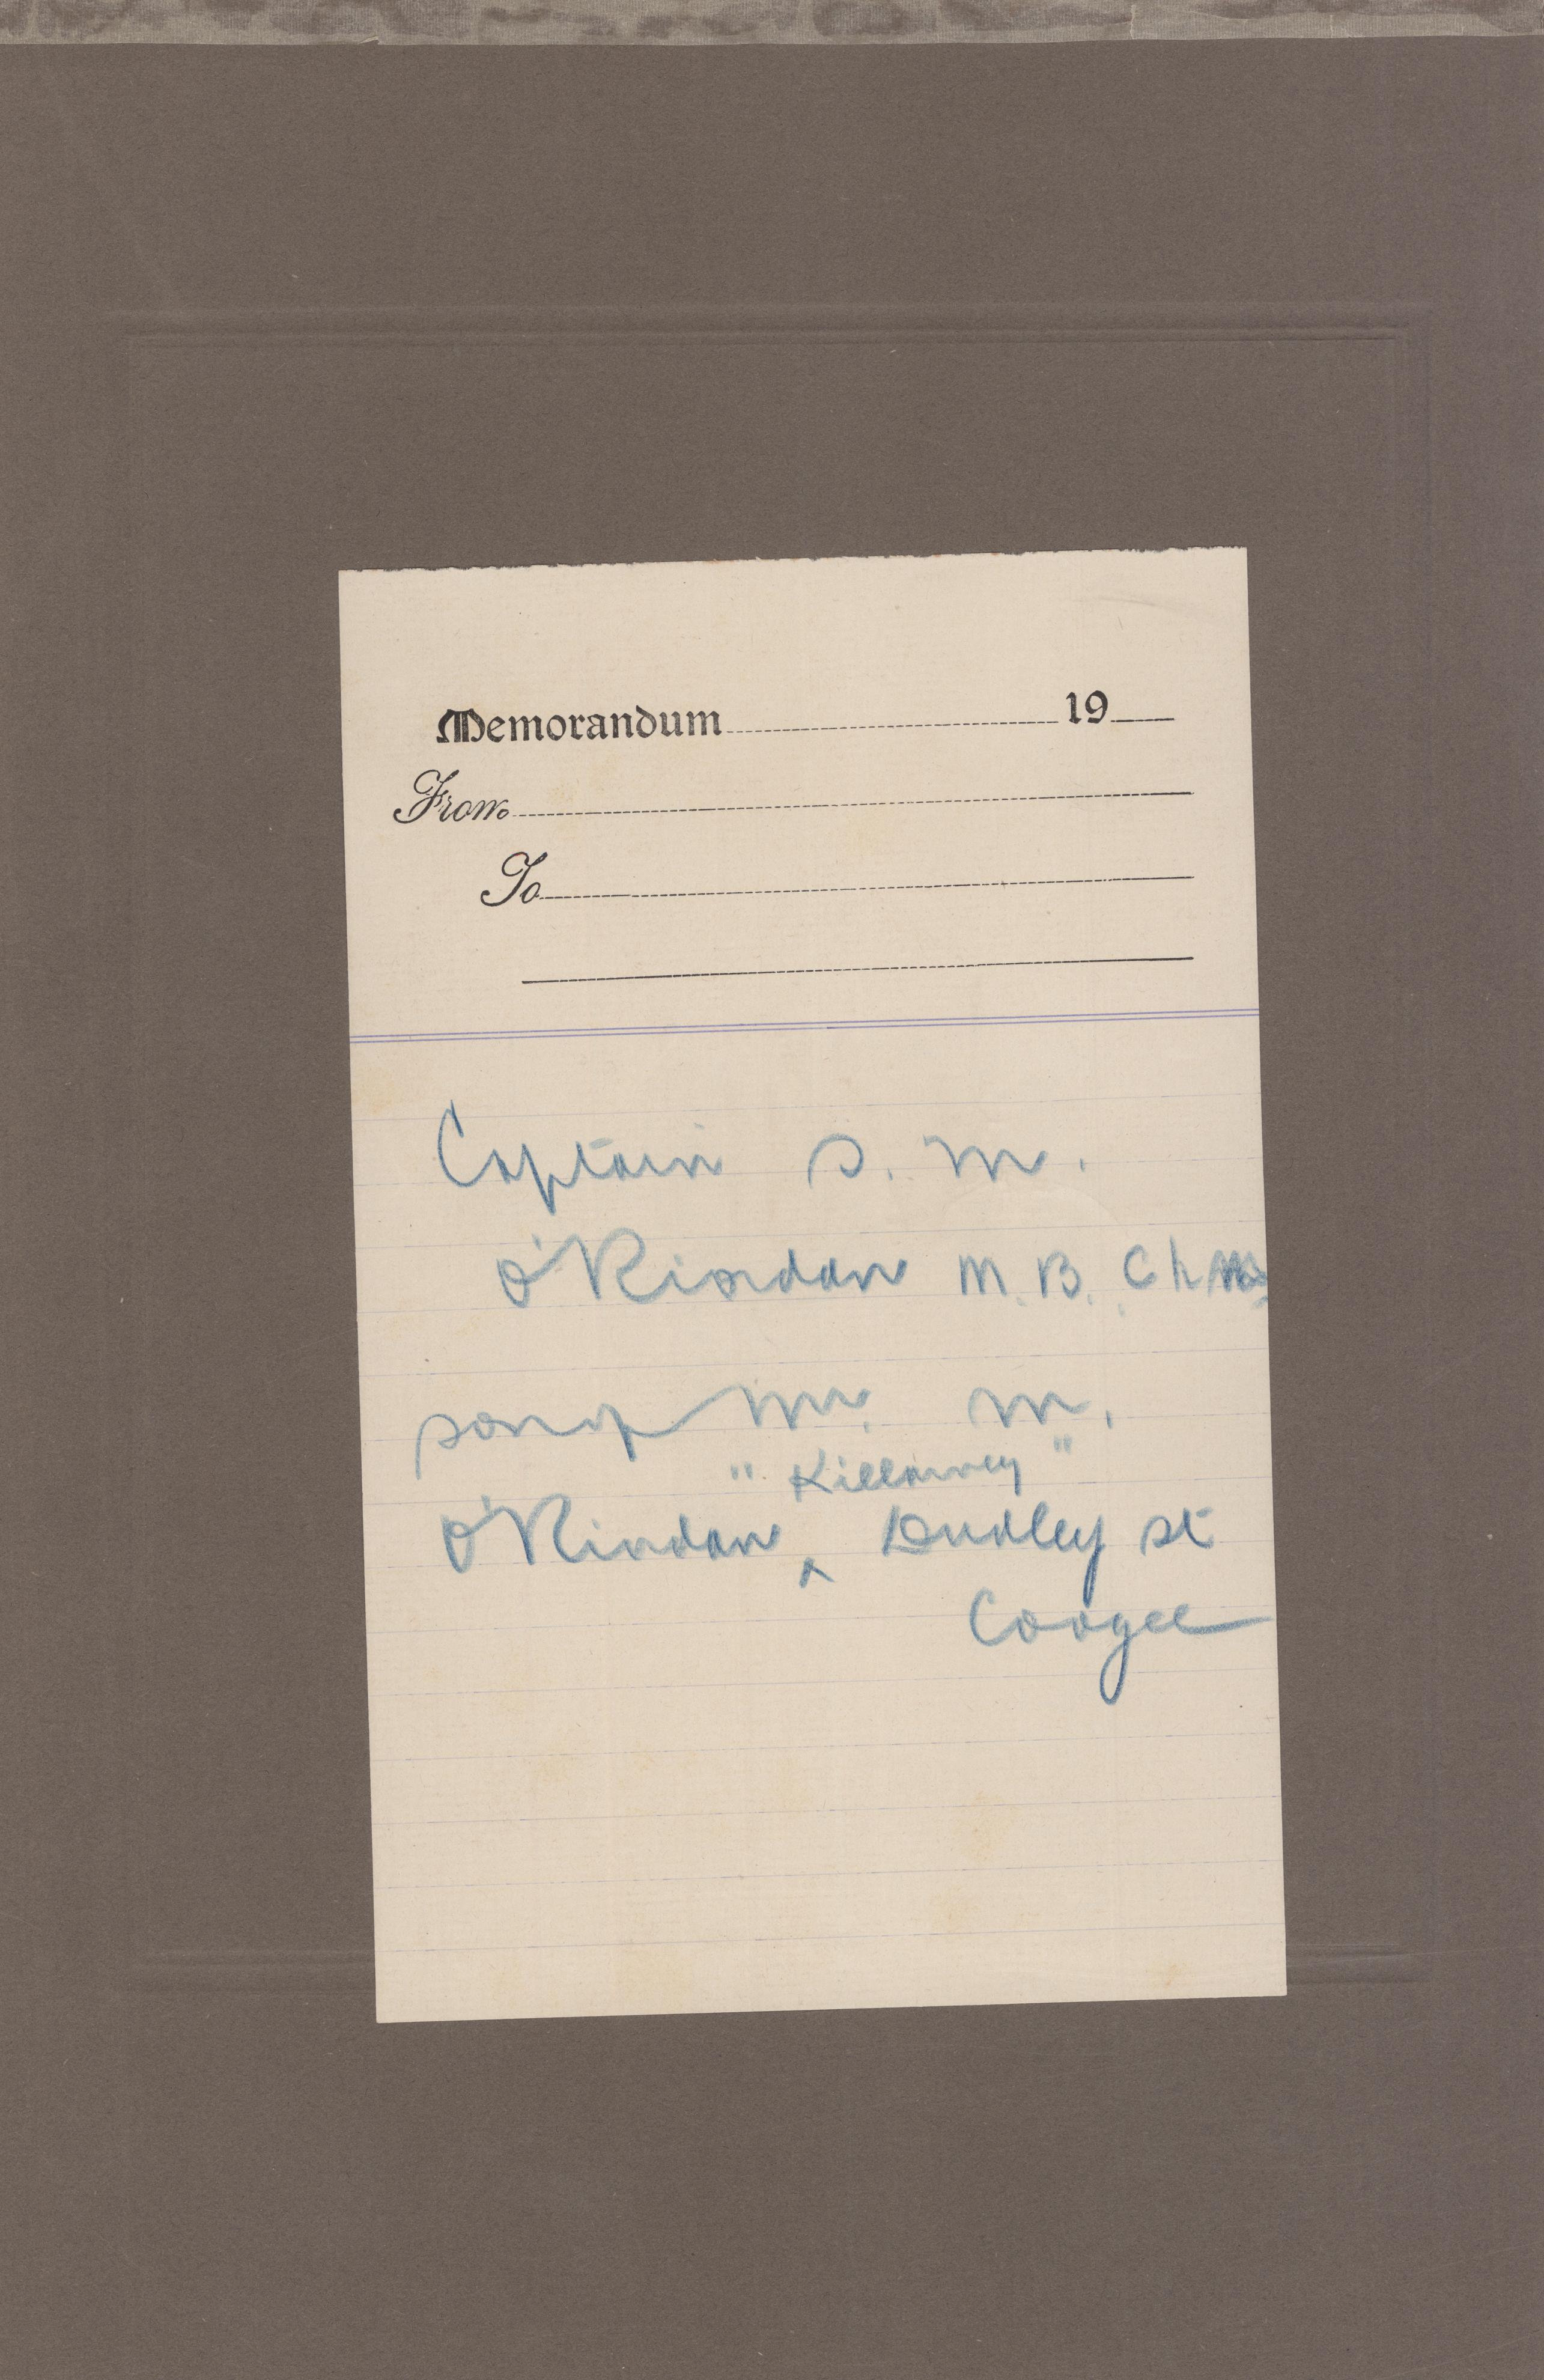 Memorandum 19
From
To
Captain S. M.
O'Riordan M. B. Ch M
son of Mr. M.
"Killarney"
O'Riordan ^ Dudley st
Coogee